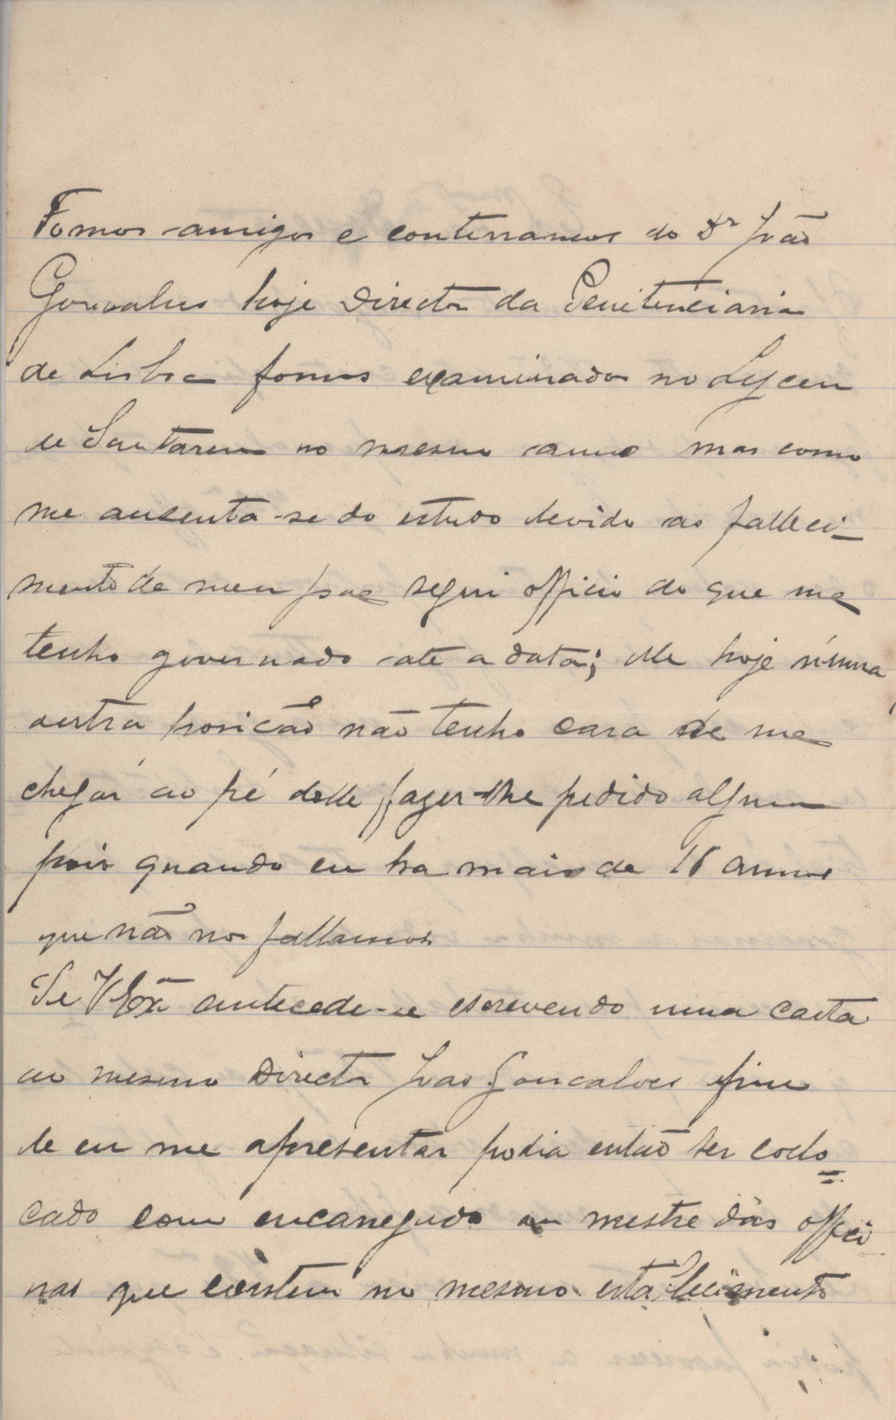 Fomos amigos e conterraneos do Dr João
Goncalves hoje Director da Penitenciaria
de Lisboa fomos examinados no Lyceu
de Santarem no mesmo anno mas como
me ausenta-se do estudo devido ao falleci-
mento de meu pae segui officio do que me
tenho governado ate a data; elle hoje n'uma
outra posicão não tenho cara de me
chegar ao pé delle fazer-lhe pedido algum
pois quando eu ha mais de 16 annos
que não nos fallamos
Se VExª antecede-se escrevendo uma carta
ao mesmo Director Joao Goncalves fim
de eu me apresentar podia então ser collo=
cado com encarregado ou mestre das offici
nas que existem no mesmo estabelecimento